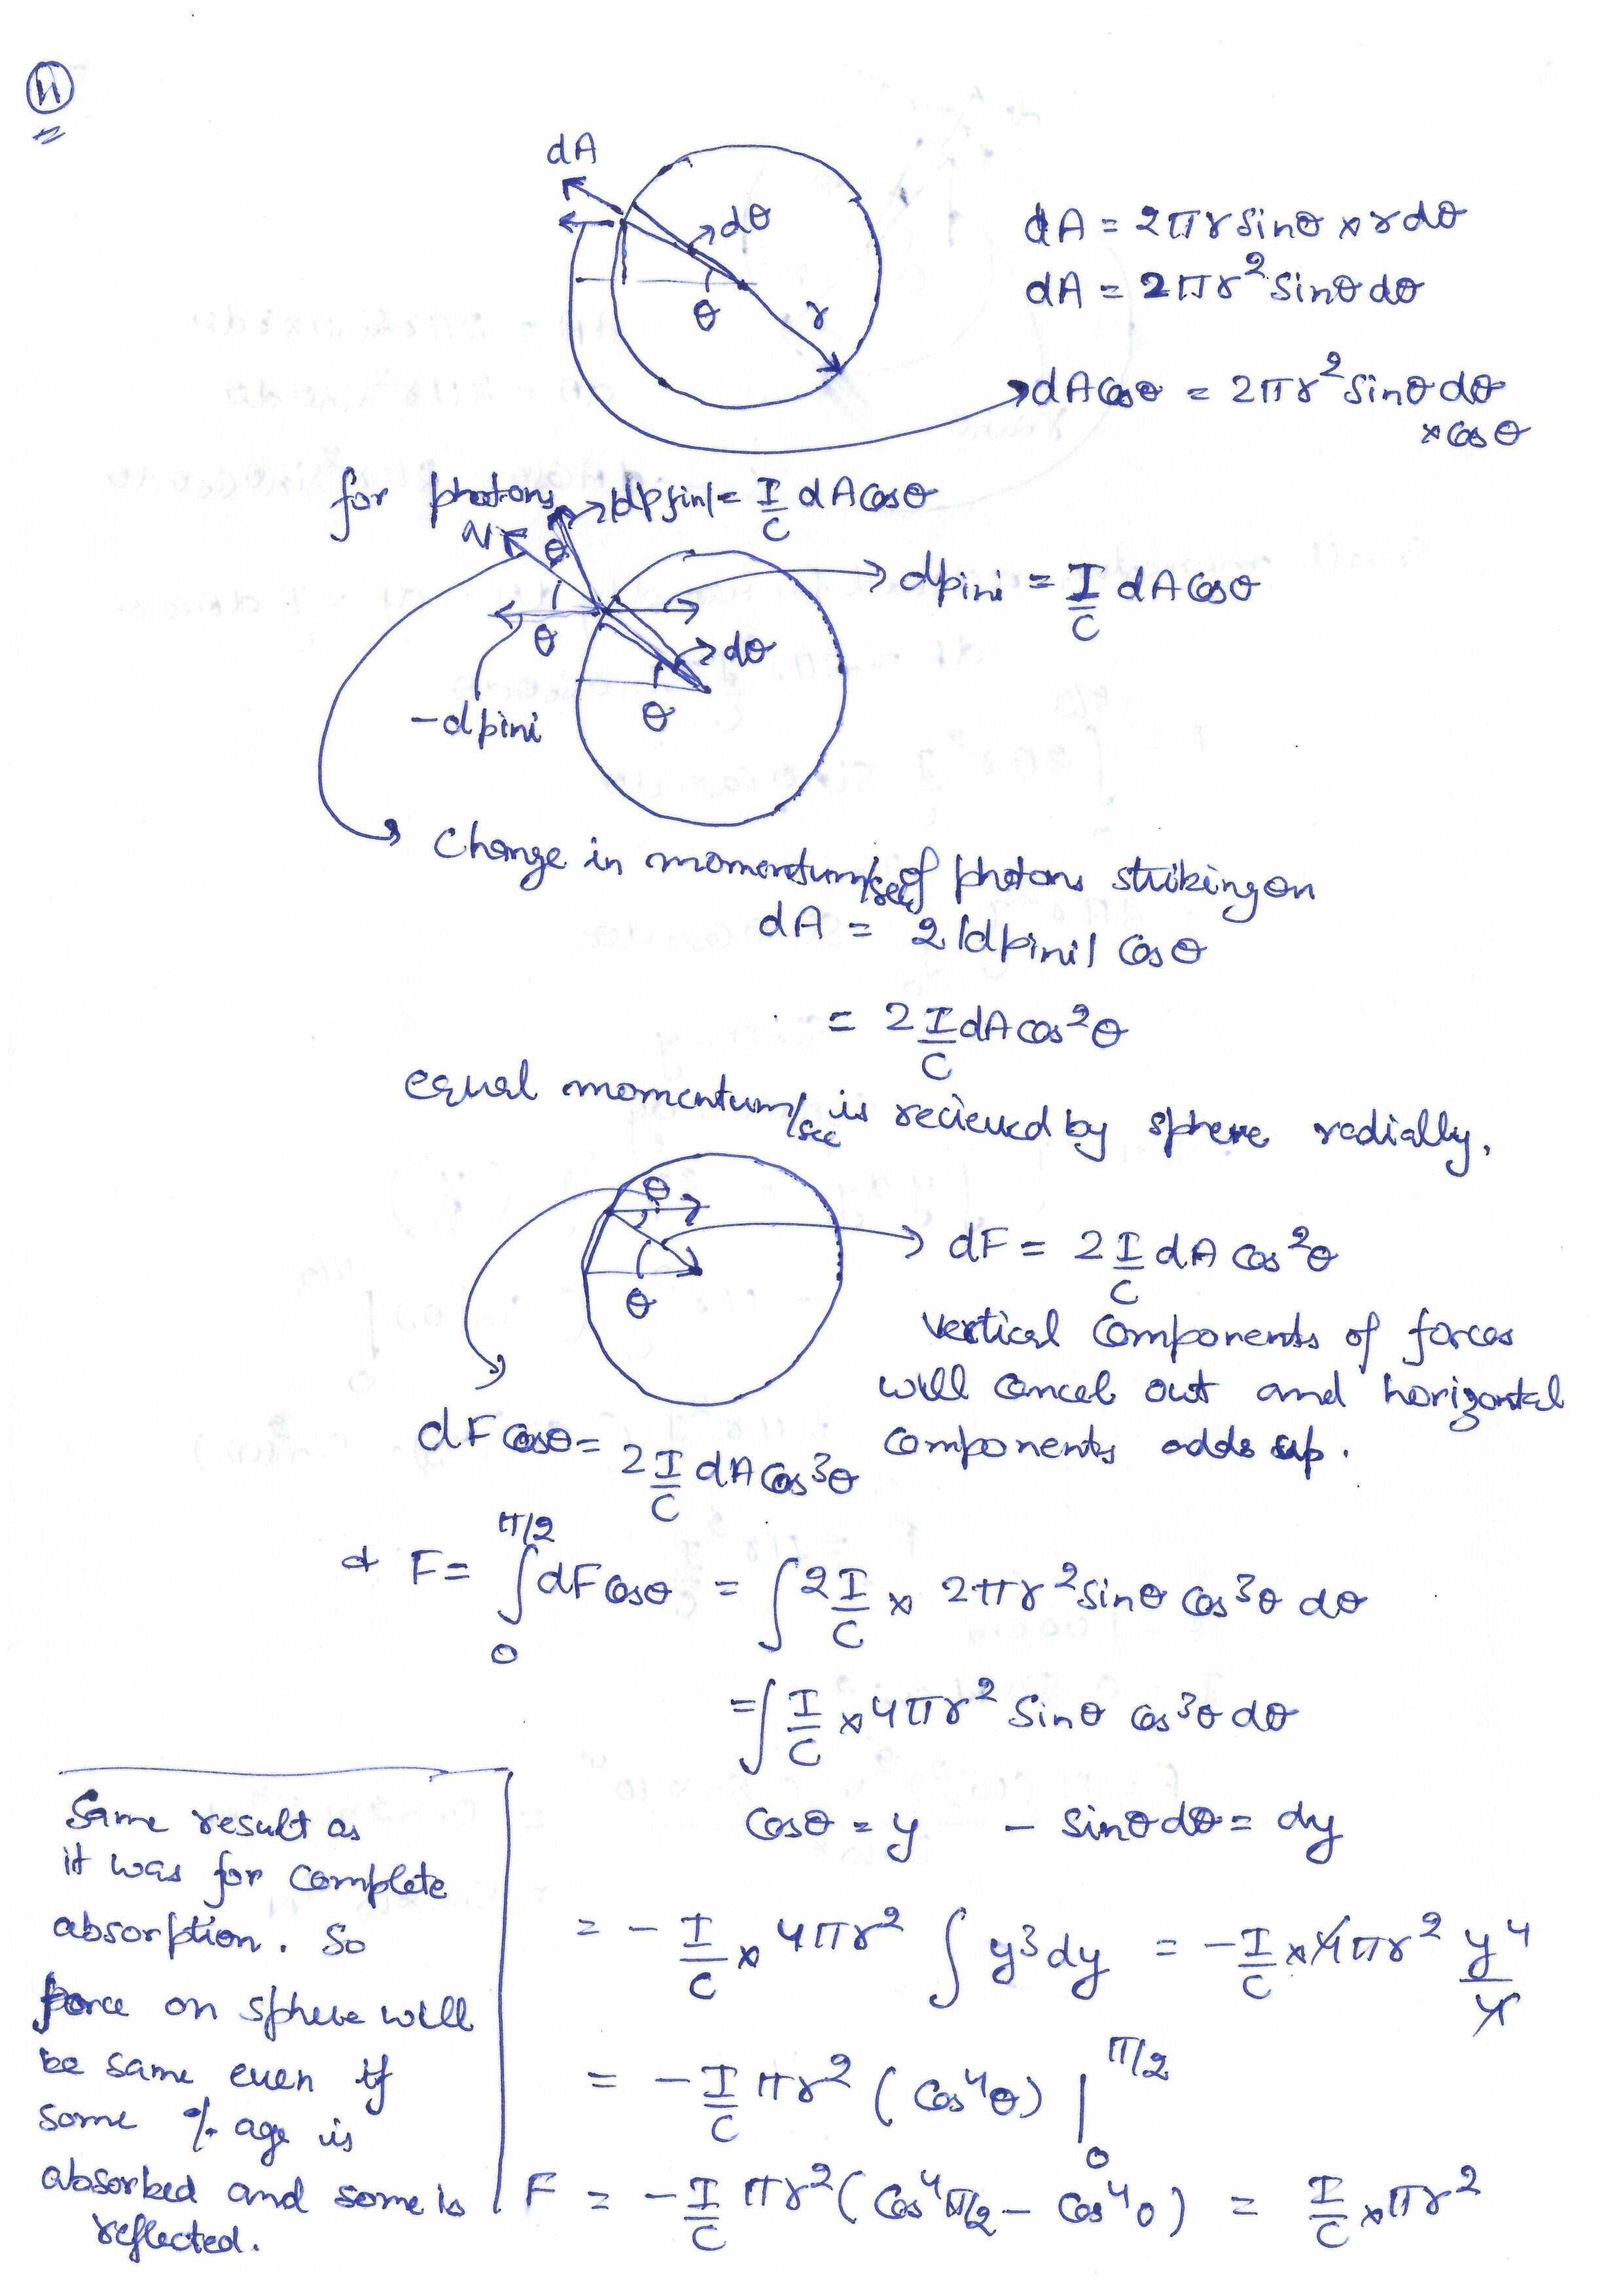 11
dA
dθ
θ
r
dA = 2πr sinθ × r dθ
dA = 2πr² Sinθ dθ
dA Cosθ = 2πr² Sinθ dθ
× Cos θ
for photons
|dpfin| = I/C dA Cosθ
N
θ
dpini = I/C dA Cosθ
θ
dθ
θ
-dpini
Change in momentum/sec of photons striking on
dA = 2 |dpini| Cos θ
= 2 I/C dA cos²θ
equal momentum/sec is recieved by sphere radially.
θ
θ
dF = 2 I/C dA Cos²θ
Vertical Components of forces
will cancel out and horizontal
Components adds up.
dF Cosθ = 2 I/C dA Cos³θ
F = ∫₀^π/2 dF Cosθ = ∫ 2 I/C × 2πr² Sinθ Cos³θ dθ
= ∫ I/C × 4πr² Sinθ Cos³θ dθ
Cosθ = y - Sinθ dθ = dy
= - I/C × 4πr² ∫ y³ dy = - I/C × 4πr² y⁴/4
= - I/C πr² (Cos⁴θ) |₀^π/2
F = - I/C πr² (Cos⁴π/2 - Cos⁴0) = I/C × πr²
Same result as
it was for Complete
absorption. So
force on sphere will
be same even if
some % age is
absorbed and some is
reflected.